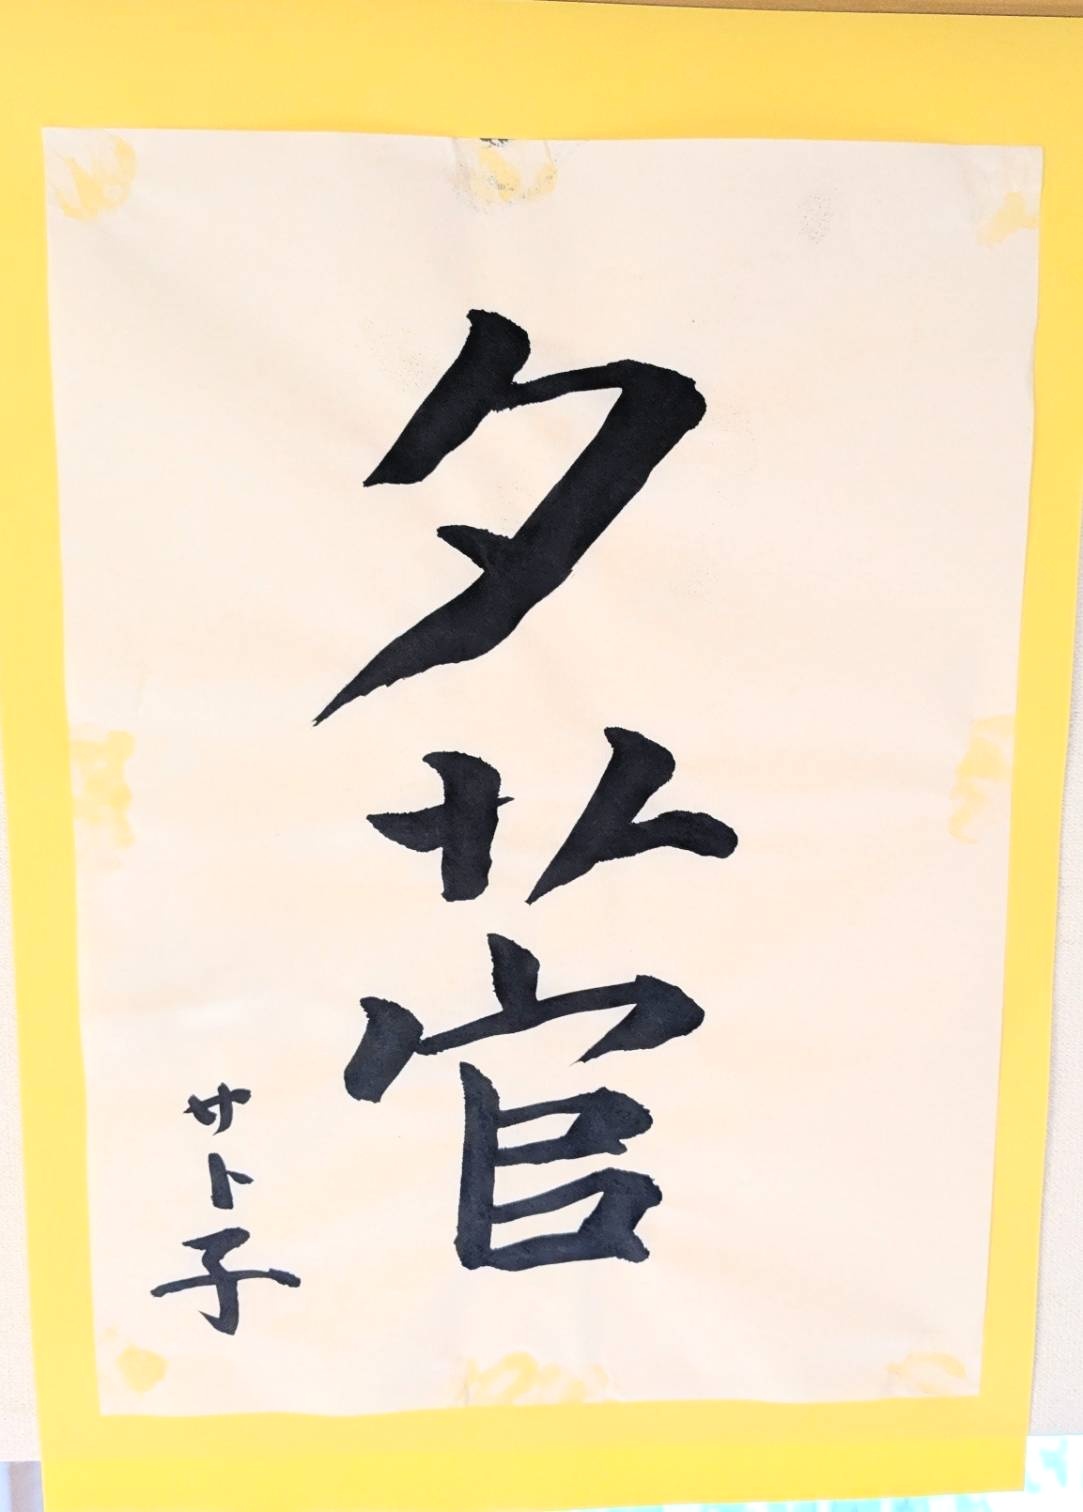 夕菅
サト子